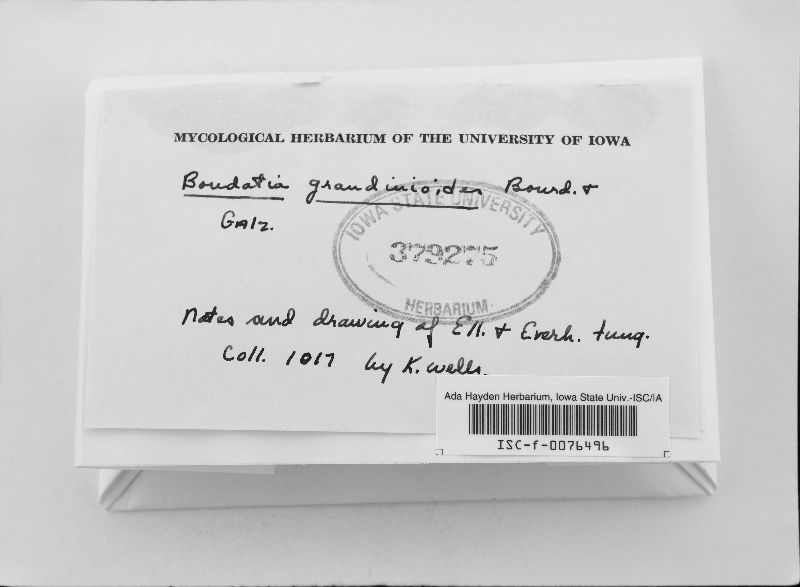 MYCOLOGICAL HERBARIUM OF THE UNIVERSITY OF IOWA
Boudatia grandinioides Bourd. &
Galz.
IOWA STATE UNIVERSITY
379275
HERBARIUM
Notes and drawing of Ell. & Everh. fung.
Coll. 1017 by K. Wells.
Ada Hayden Herbarium, Iowa State Univ.-ISC/IA
ISC-f-0076496